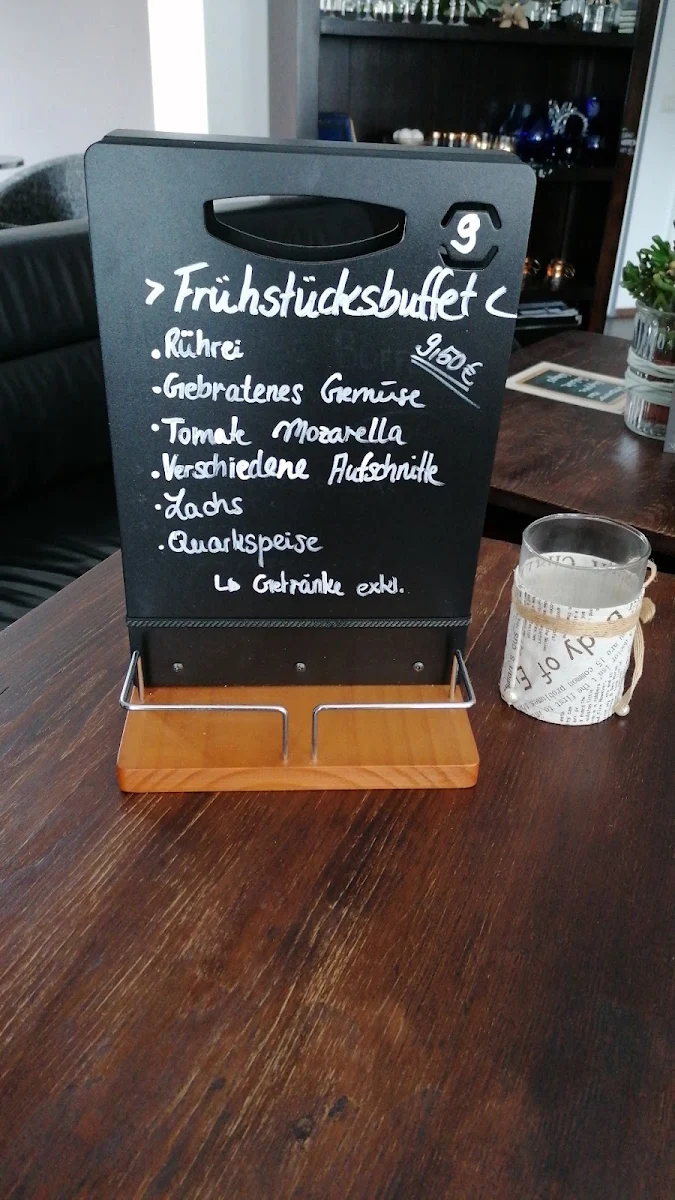 9
> Frühstücksbuffet <
9,50 €
• Rührei
• Gebratenes Gemüse
• Tomate Mozarella
• Verschiedene Aufschnitte
• Lachs
• Quarkspeise
↳ Getränke exkl.